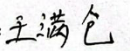 王满仓